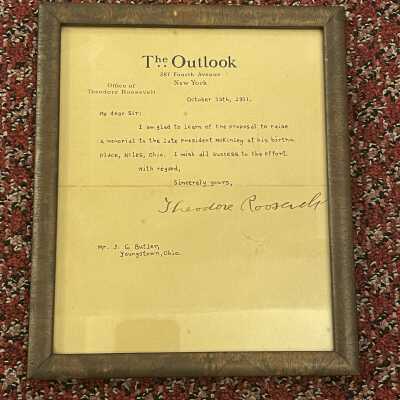 The Outlook
287 Fourth Avenue
New York
Office of
Theodore Roosevelt
October 19th, 1911.
My dear Sir:
I am glad to learn of the proposal to raise
a memorial to the late President McKinley at his birth
place, Niles, Ohio. I wish all success to the effort.
With regard,
Sincerely yours,
Theodore Roosevelt
Mr. J. G. Butler,
Youngstown, Ohio.